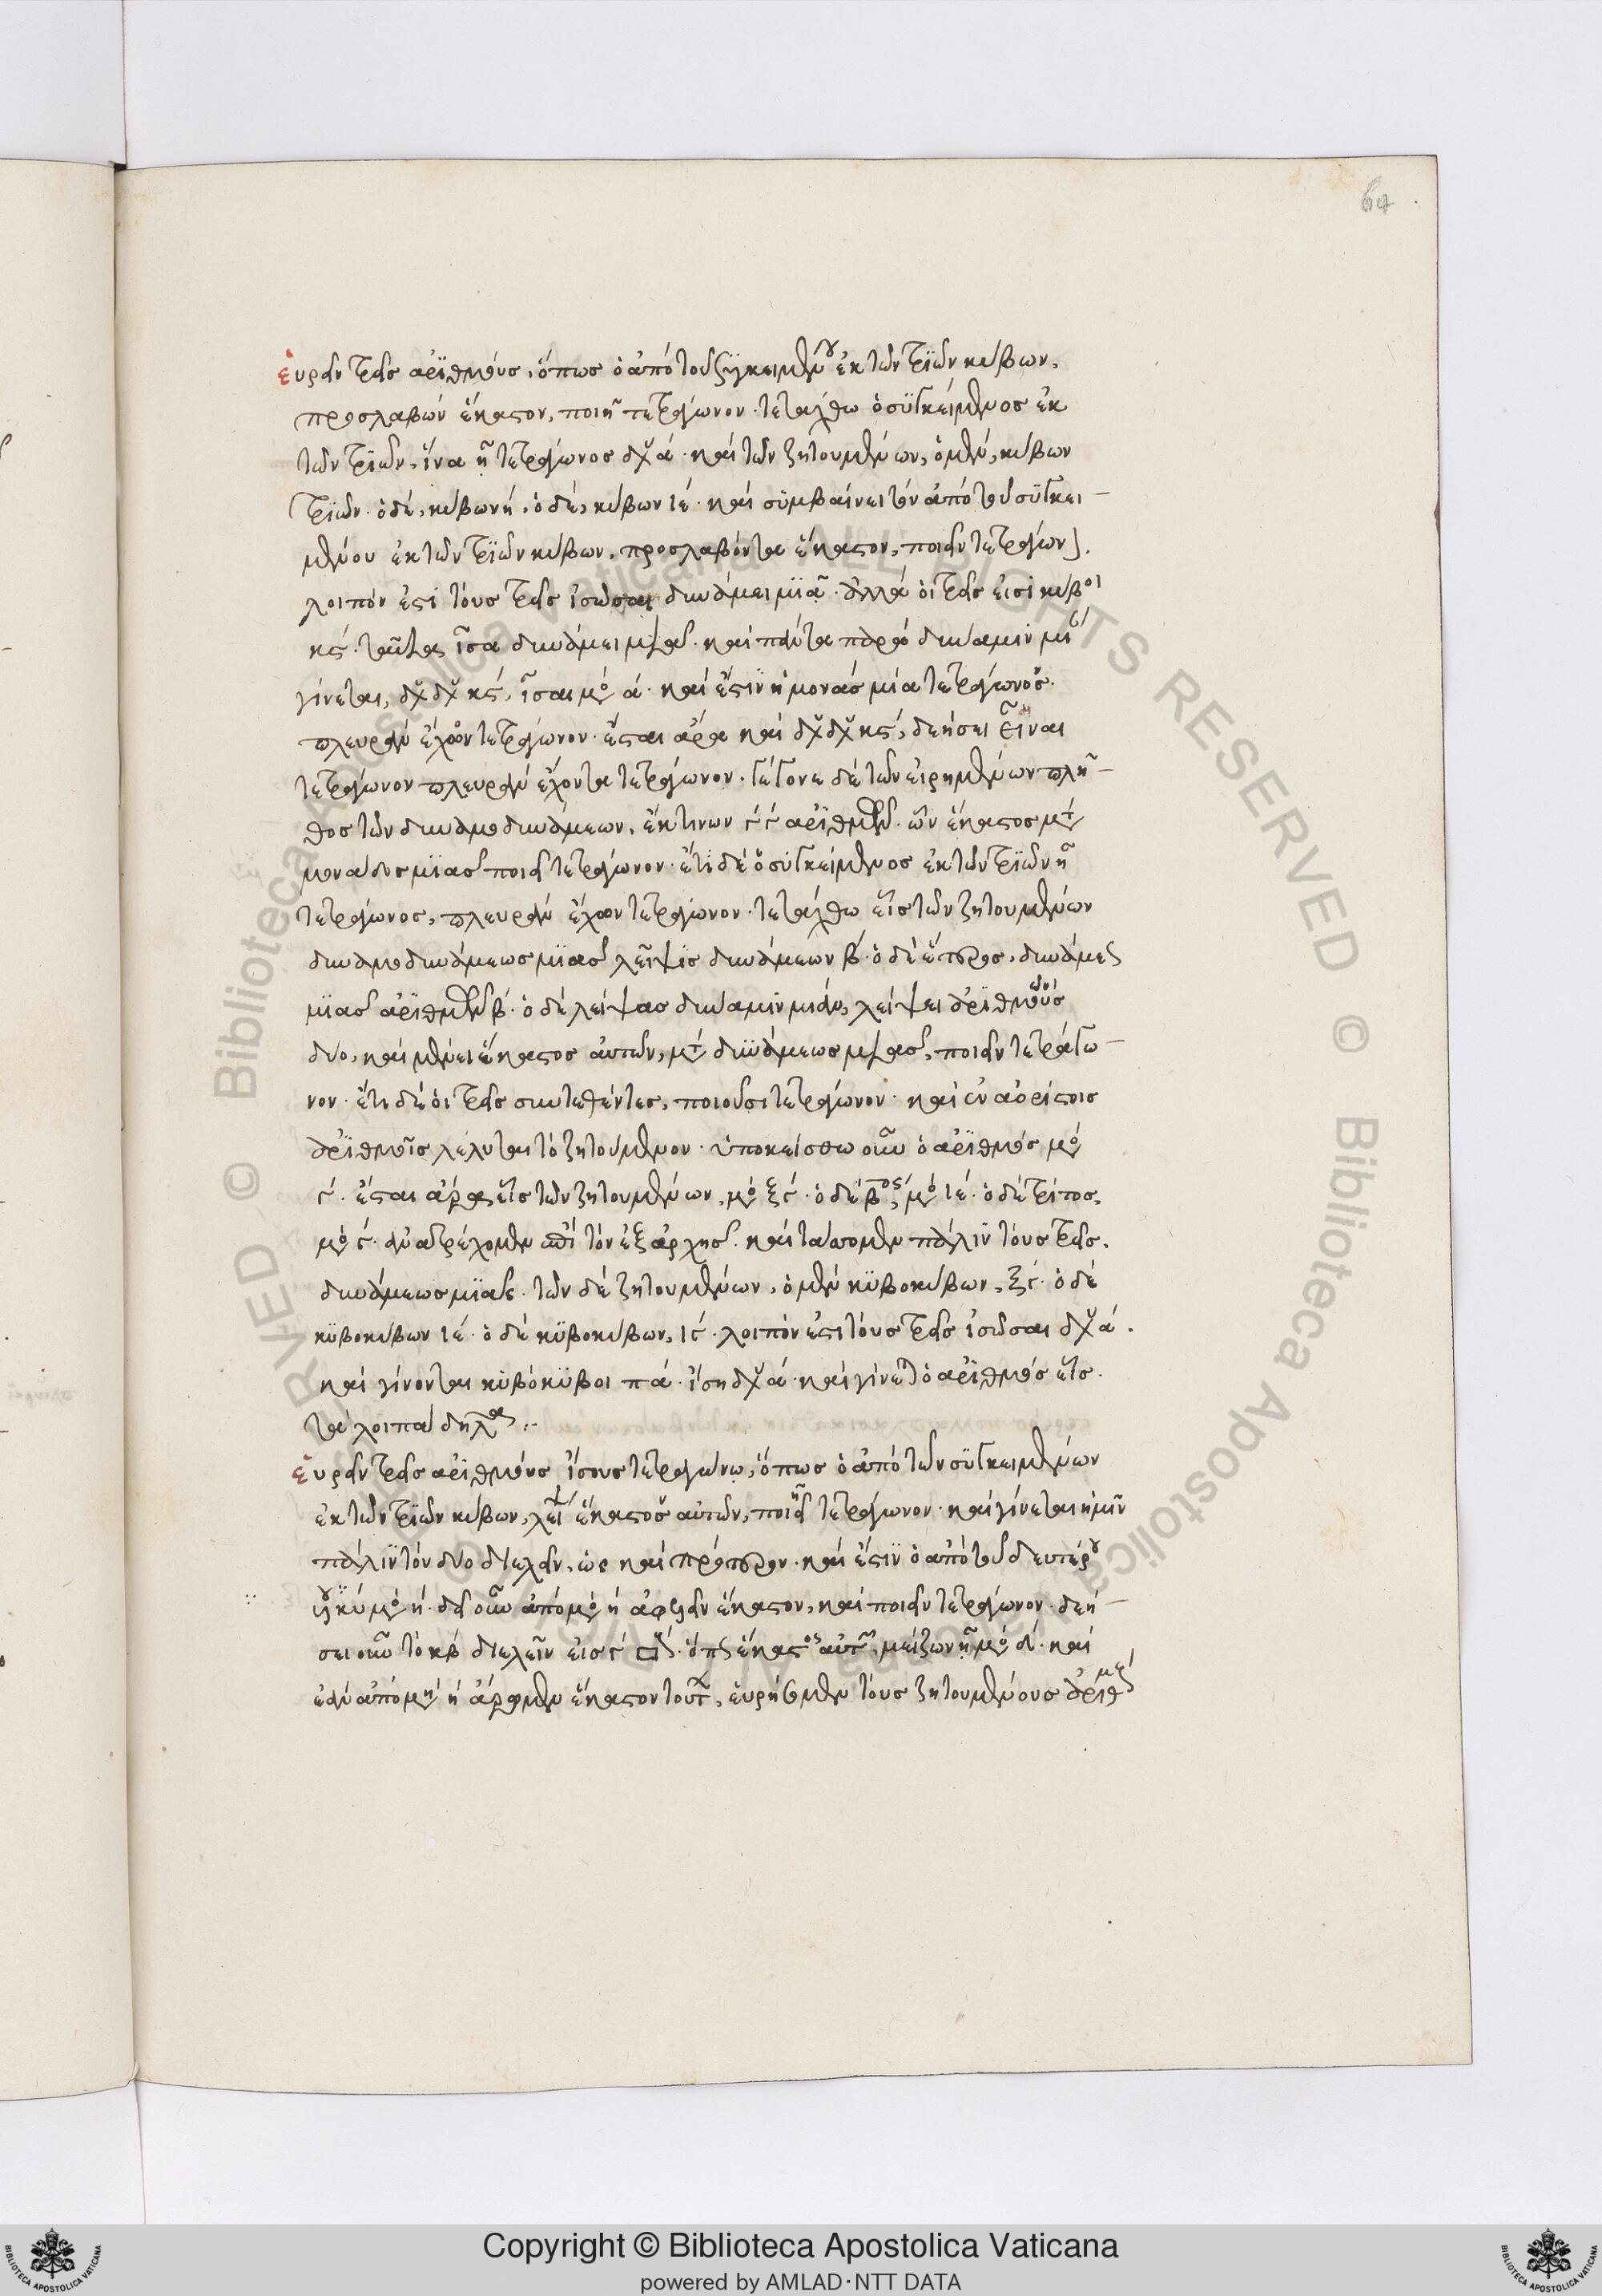 64
εὑρεῖν τρεῖς ἀριθμοὺς, ὅπως ὁ ἀπὸ τοῦ συγκειμένου ἐκ τῶν τριῶν κύβων,
προσλαβὼν ἕκαστον, ποιῇ τετράγωνον. τετάχθω ὁ συγκείμενος ἐκ
τῶν τριῶν, ἵνα ᾖ τετράγωνος δῡ ά. καὶ τῶν ζητουμένων, ὁ μὲν, κύβων
τριῶν. ὁ δὲ, κύβων ή. ὁ δὲ, κύβων ιέ. καὶ συμβαίνει τὸν ἀπὸ τοῦ συγκει-
μένου ἐκ τῶν τριῶν κύβων, προσλαβόντα ἕκαστον, ποιεῖν τετράγωνον.
λοιπόν ἐστι τοὺς τρεῖς ἰσῶσαι δυνάμει μιᾷ. ἀλλὰ οἱ τρεῖς εἰσὶ κύβοι
κς. ταῦτα ἴσα δυνάμει μιᾷ. καὶ πάντα παρὰ δύναμιν
γίνεται, δῡδῡ κς, ἴσαι μο ά. καὶ ἔστιν ἡ μονὰς μία τετράγωνος
πλευρὰν ἔχων τετράγωνον. ἔσται ἄρα καὶ δῡδῡ κς, δεήσει εἶναι
τετράγωνον πλευρὰν ἔχοντα τετράγωνον. γέγονε δὲ τῶν εἰρημένων πλῆ-
θος τῶν δυναμοδυνάμεων, ἔκ τινων ἀριθμῶν. ὧν ἕκαστος μετὰ
μονάδος μιᾶς ποιεῖ τετράγωνον. ἔτι δὲ ὁ συγκείμενος ἐκ τῶν τριῶν ᾖ
τετράγωνος, πλευρὰν ἔχων τετράγωνον. τετάχθω εἷς τῶν ζητουμένων
δυναμοδυνάμεως μιᾶς λεῖψις δυνάμεων β. ὁ δὲ ἕτερος, δυνάμεως
μιᾶς ἀριθμῶν β. ὁ δὲ λείψας δύναμιν μίαν, λείψει ἀριθμοὺς
δύο, καὶ μένει ἕκαστος αὐτῶν, μετὰ δυνάμεως μιᾶς, ποιεῖν τετράγω-
νον. ἔτι δὲ οἱ τρεῖς συντεθέντες, ποιοῦσι τετράγωνον. καὶ ἐν ἀορίστοις
ἀριθμοῖς λέλυται τὸ ζητούμενον. ὑποκείσθω οὖν ὁ ἀριθμὸς μο
ἔσται ἄρα εἷς τῶν ζητουμένων, μο ξγ. ὁ δὲ βος, μο ιέ. ὁ δὲ τρίτος,
μο γ. ἀνατρέχομεν ἐπὶ τὸν ἐξ ἀρχῆς. καὶ τάσσομεν πάλιν τοὺς τρεῖς,
δυνάμεως μιᾶς. τῶν δὲ ζητουμένων, ὁ μὲν κυβοκύβων, ξγ. ὁ δὲ
κυβοκύβων ιέ. ὁ δὲ κυβοκύβων, γ. λοιπόν ἐστι τοὺς τρεῖς ἰσῶσαι δῡ ά.
καὶ γίνονται κυβόκυβοι πά. ἴσοι δῡ ά. καὶ γίνεται ὁ ἀριθμὸς εἷς.
τὰ λοιπὰ δῆλα..
Εὑρεῖν τρεῖς ἀριθμοὺς ἴσους τετραγώνῳ, ὅπως ὁ ἀπὸ τῶν συγκειμένων
ἐκ τῶν τριῶν κύβων, λείψει ἕκαστος αὐτῶν, ποιῇ τετράγωνον. καὶ γίνεται ἡμῖν
πάλιν τὸν δύο διελεῖν, ὡς καὶ πρότερον. καὶ ἔστιν ὁ ἀπὸ τοῦ δευτέρου
κῡ μο ή. δεῖ οὖν ἀπὸ μο ή ἀφελεῖν ἕκαστον, καὶ ποιεῖν τετράγωνον. δεή-
σει οὖν τὸ κβ διελεῖν εἰς γ □. ὅπως ἕκαστος αὐτῶν, μείζων ᾖ μο δ. καὶ
ἐὰν ἀπὸ μο ή ἄρωμεν ἕκαστον τούτων, εὑρήσομεν τοὺς ζητουμένους ἀριθμούς
Biblioteca Apostolica Vaticana ALL RIGHTS RESERVED ©
Copyright © Biblioteca Apostolica Vaticana
powered by AMLAD·NTT DATA
BIBLIOTECA APOSTOLICA VATICANA
BIBLIOTECA APOSTOLICA VATICANA